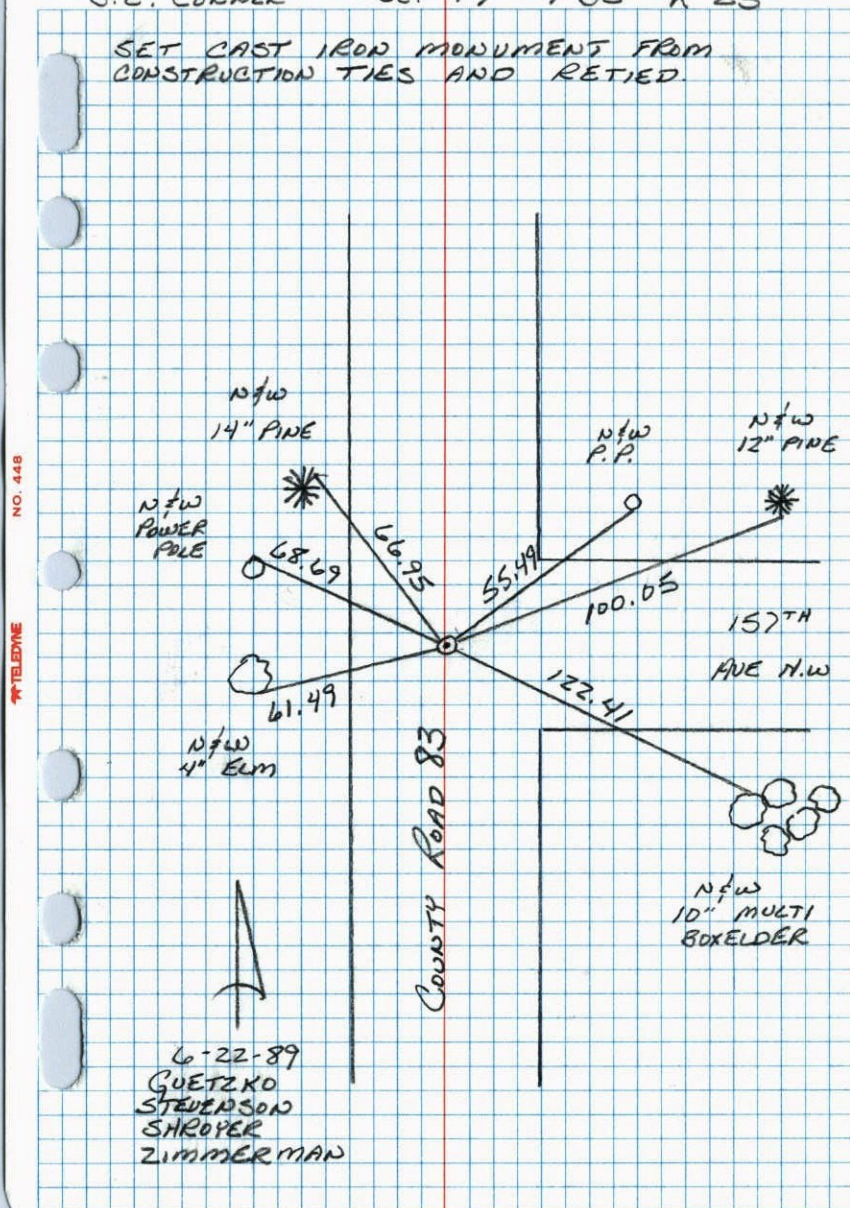 SET CAST IRON MONUMENT FROM
CONSTRUCTION TIES AND RETIED.
N&W
14" PINE
N&W
P.P.
N&W
12" PINE
N&W
POWER
POLE
68.69
66.95
55.49
100.05
157TH
AVE N.W
61.49
122.41
N&W
4" ELM
COUNTY ROAD 83
N&W
10" MULTI
BOXELDER
6-22-89
GUETZKO
STEVENSON
SHROYER
ZIMMERMAN
NO. 448
TELEDYNE